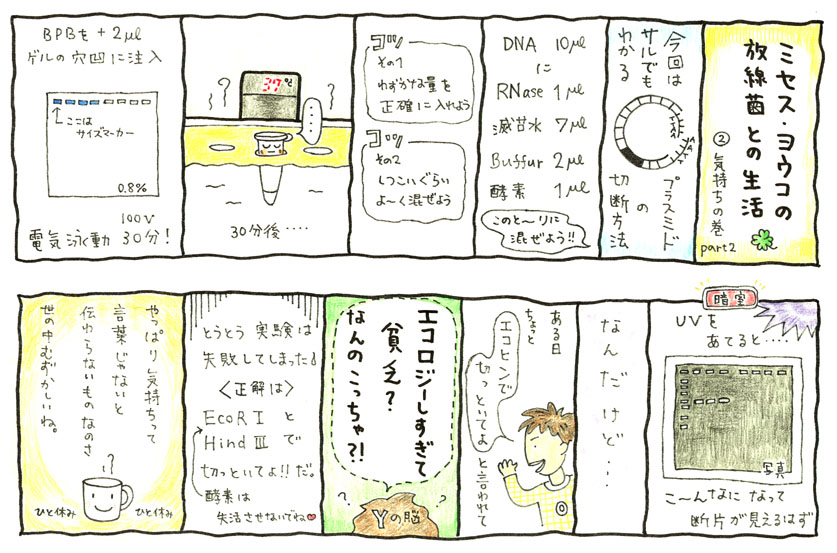 ミセス・ヨウコの
放線菌との生活
② 気持ちの巻
part2
今回は
サルでも
わかる
プラスミド
の
切断方法
DNA 10μl
に
RNase 1μl
滅菌水 7μl
Buffur 2μl
酵素 1μl
このと〜りに
混ぜよう!!
コツ
その1
わずかな量を
正確に入れよう
コツ
その2
しつこいぐらい
よ〜く混ぜよう
37℃
30分後‥‥
BPBを +2μl
ゲルの穴凹に注入
ここは
サイズマーカー
0.8%
100V
電気泳動 30分!
暗室
UVを
あてると‥‥
写真
こ〜んなになって
断片が見えるはず
なんだけど・・・
ある日
ちょっと
エコヒンで
切っといてよ
と言われて
エコロジーしすぎて
貧乏?
なんのこっちゃ?!
Yの脳
とうとう実験は
失敗してしまった!
<正解は>
EcoRⅠ と
HindⅢ で
切っといてよ!!だ。
酵素は
失活させないでね
やっぱり気持ちって
言葉じゃないと
伝わらないものなのさ
世の中むずかしいね。
ひと休み
ひと休み